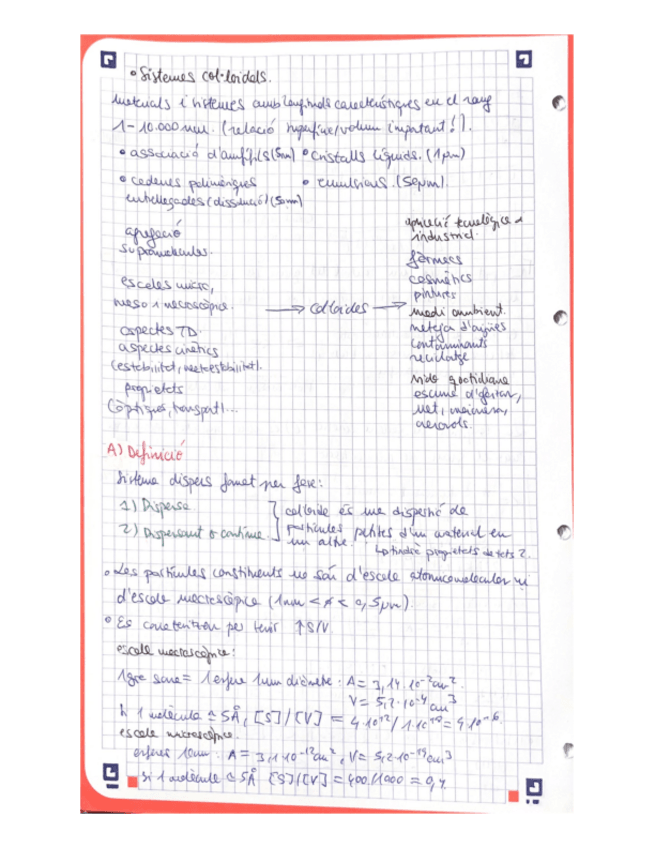 • Sistemes col·loidals.
Materials i sistemes amb longituds característiques en el rang
1-10.000 nm. (relació superfície/volum important!).
• associació d'amfífils (5nm) • Cristalls líquids. (1μm)
• cadenes polimèriques • emulsions. (50μm).
entrellaçades (dissolució) (50nm)
agregació
supramolecular.
escales micro,
meso i macroscòpica.
aspectes TD.
aspectes cinètics
(estabilitat, metaestabilitat).
propietats
(òptiques, transport)...
→ Col·loides →
aplicació tecnològica i
industrial.
fàrmacs
cosmètics
pintures
medi ambient.
neteja d'aigües
contaminants
reciclatge
vida quotidiana
escuma d'afaitar,
llet, maionesa,
aerosols.
A) Definició
Sistema dispers format per fase:
1) Dispersa
2) Dispersant o contínua
col·loide és una dispersió de
partícules petites d'un material en
un altre.
↳ tindrà propietats de tots 2.
• Les partícules constituents no són d'escala atomicomolecular ni
d'escala macroscòpica (1nm < ø < 0,5μm).
• Es caracteritzen per tenir ↑S/V
escala macroscòpica:
1 gra sorra = 1 esfera 1mm diàmetre: A = 3,14·10⁻² cm².
V = 5,2·10⁻⁴ cm³
Si 1 molècula ≃ 5Å, [S]/[V] = 4·10¹²/1·10¹⁸ = 4·10⁻⁶.
escala microscòpica.
esferes 10nm: A = 3,1·10⁻¹² cm², V = 5,2·10⁻¹⁹ cm³
Si 1 molècula ≃ 5Å [S]/[V] = 400/1000 = 0,4.